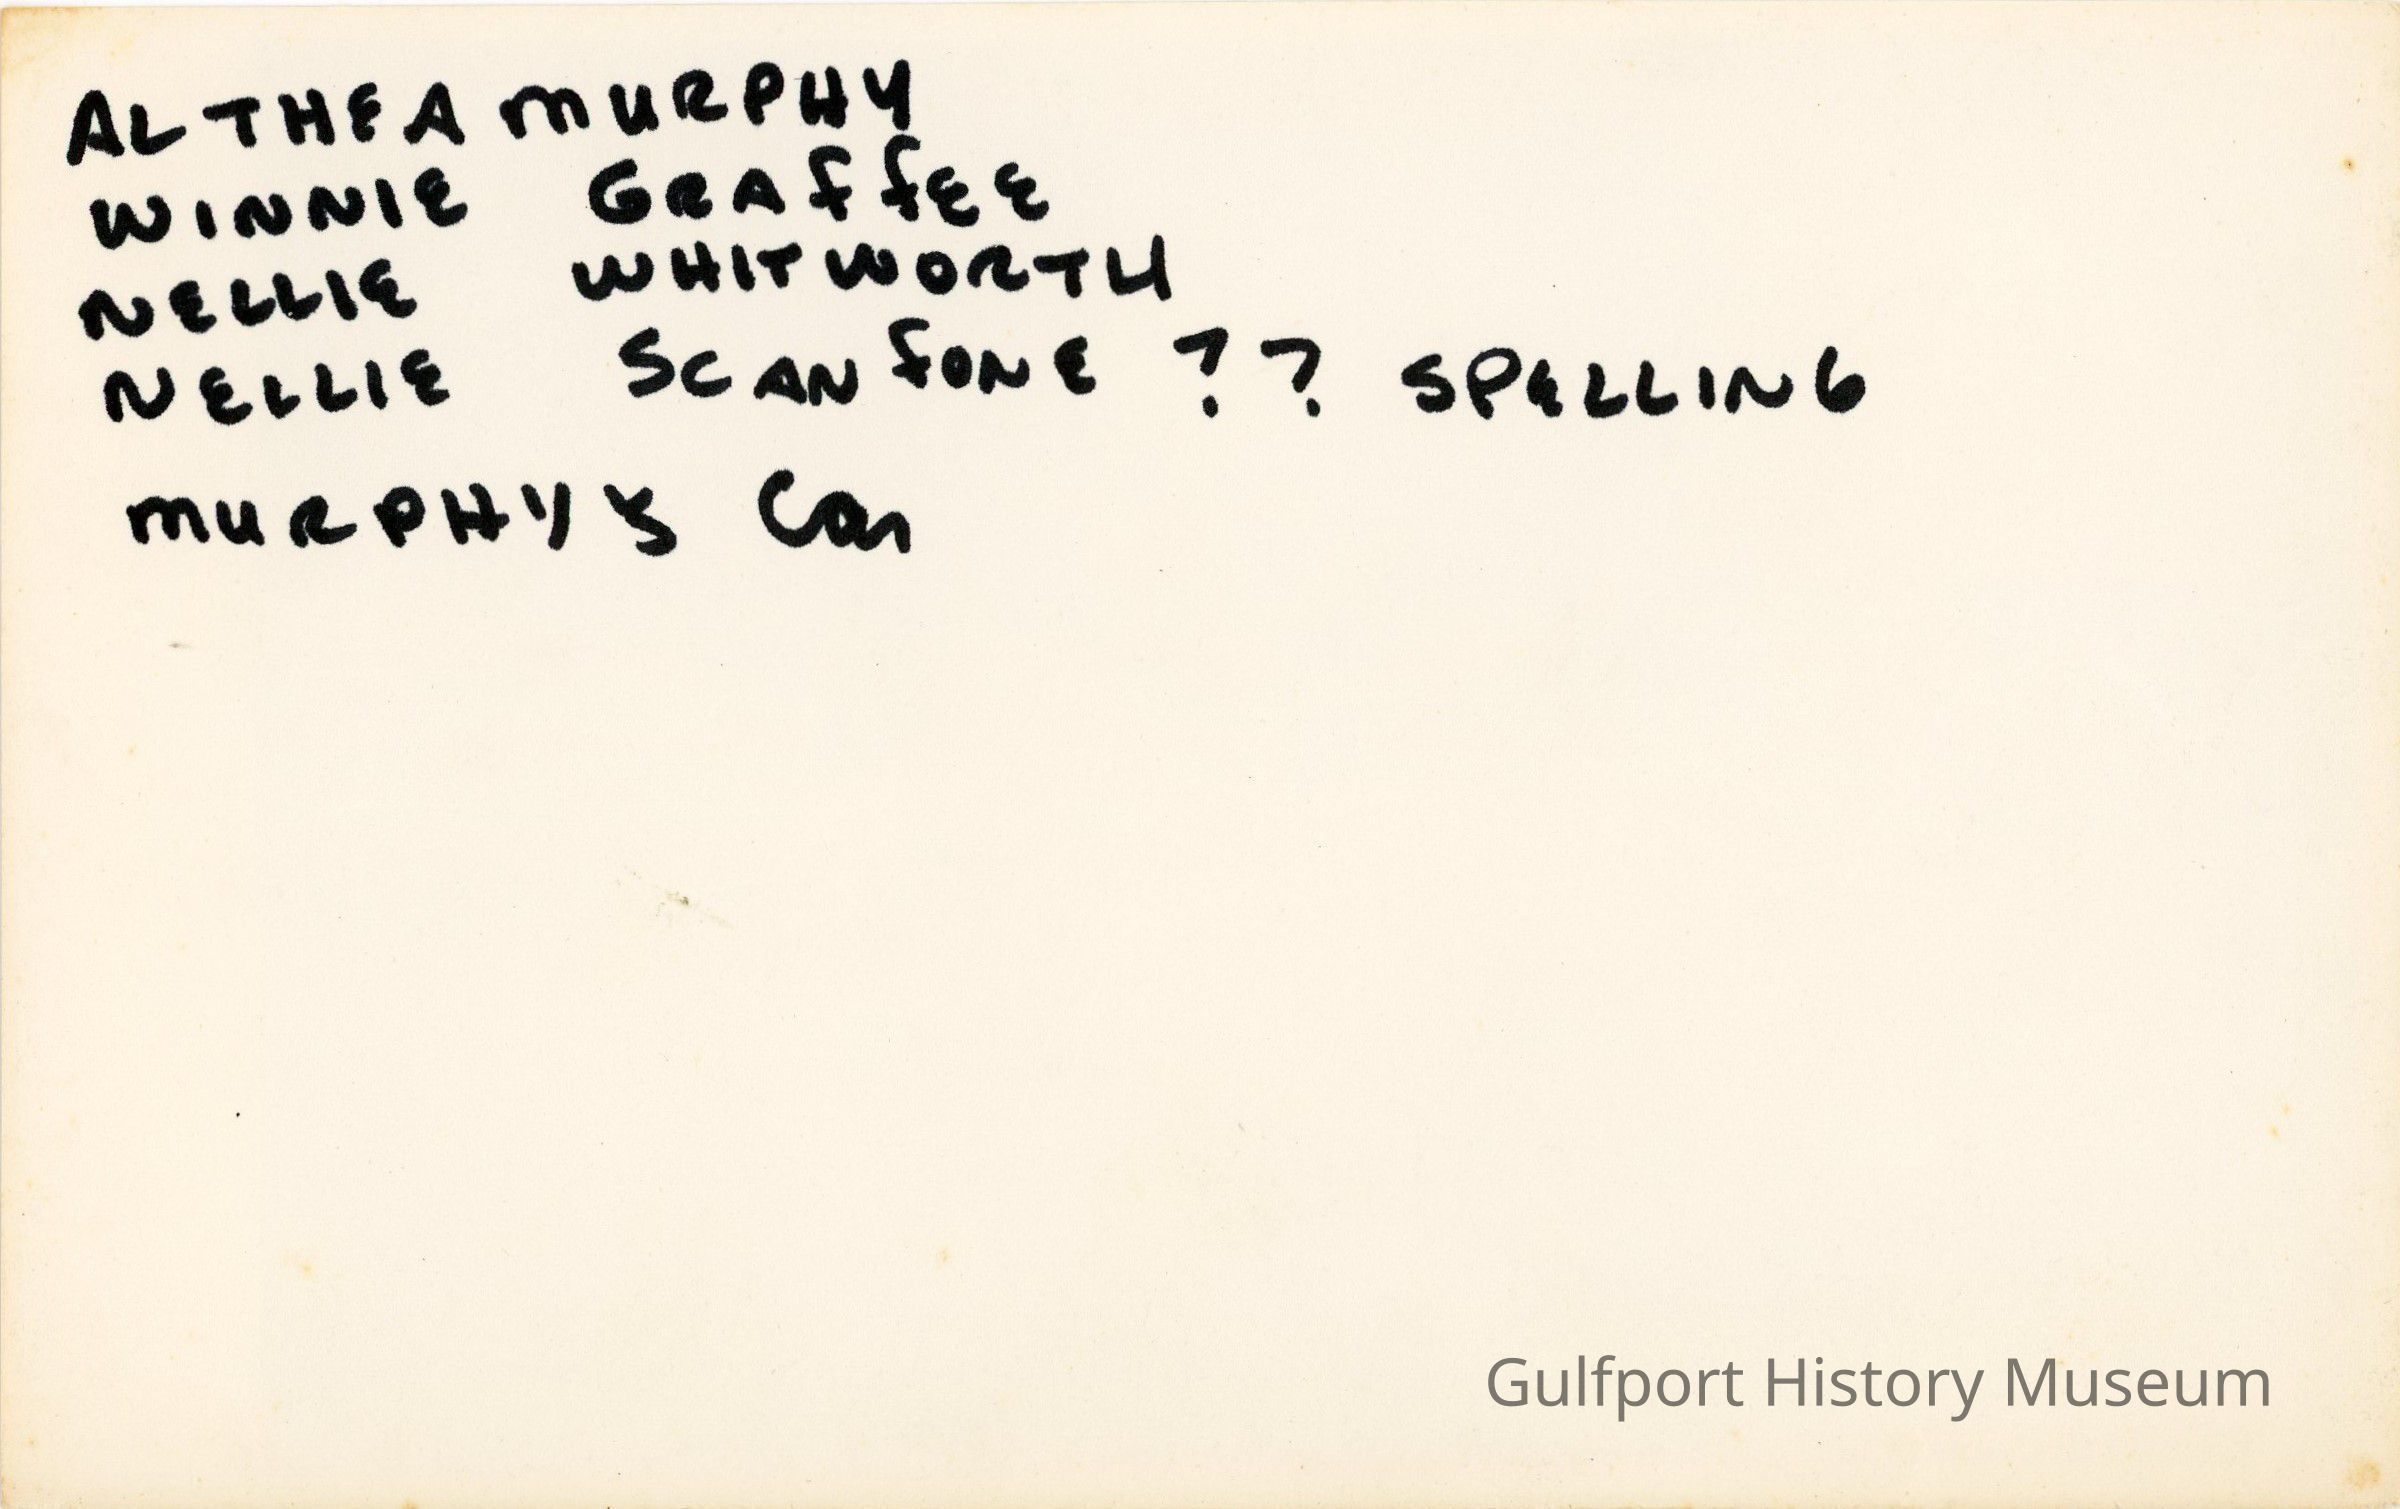 ALTHEA MURPHY
WINNIE GRAFFEE
NELLIE WHITWORTH
NELLIE SCANFONE ?? SPELLING
MURPHYS Car
Gulfport History Museum